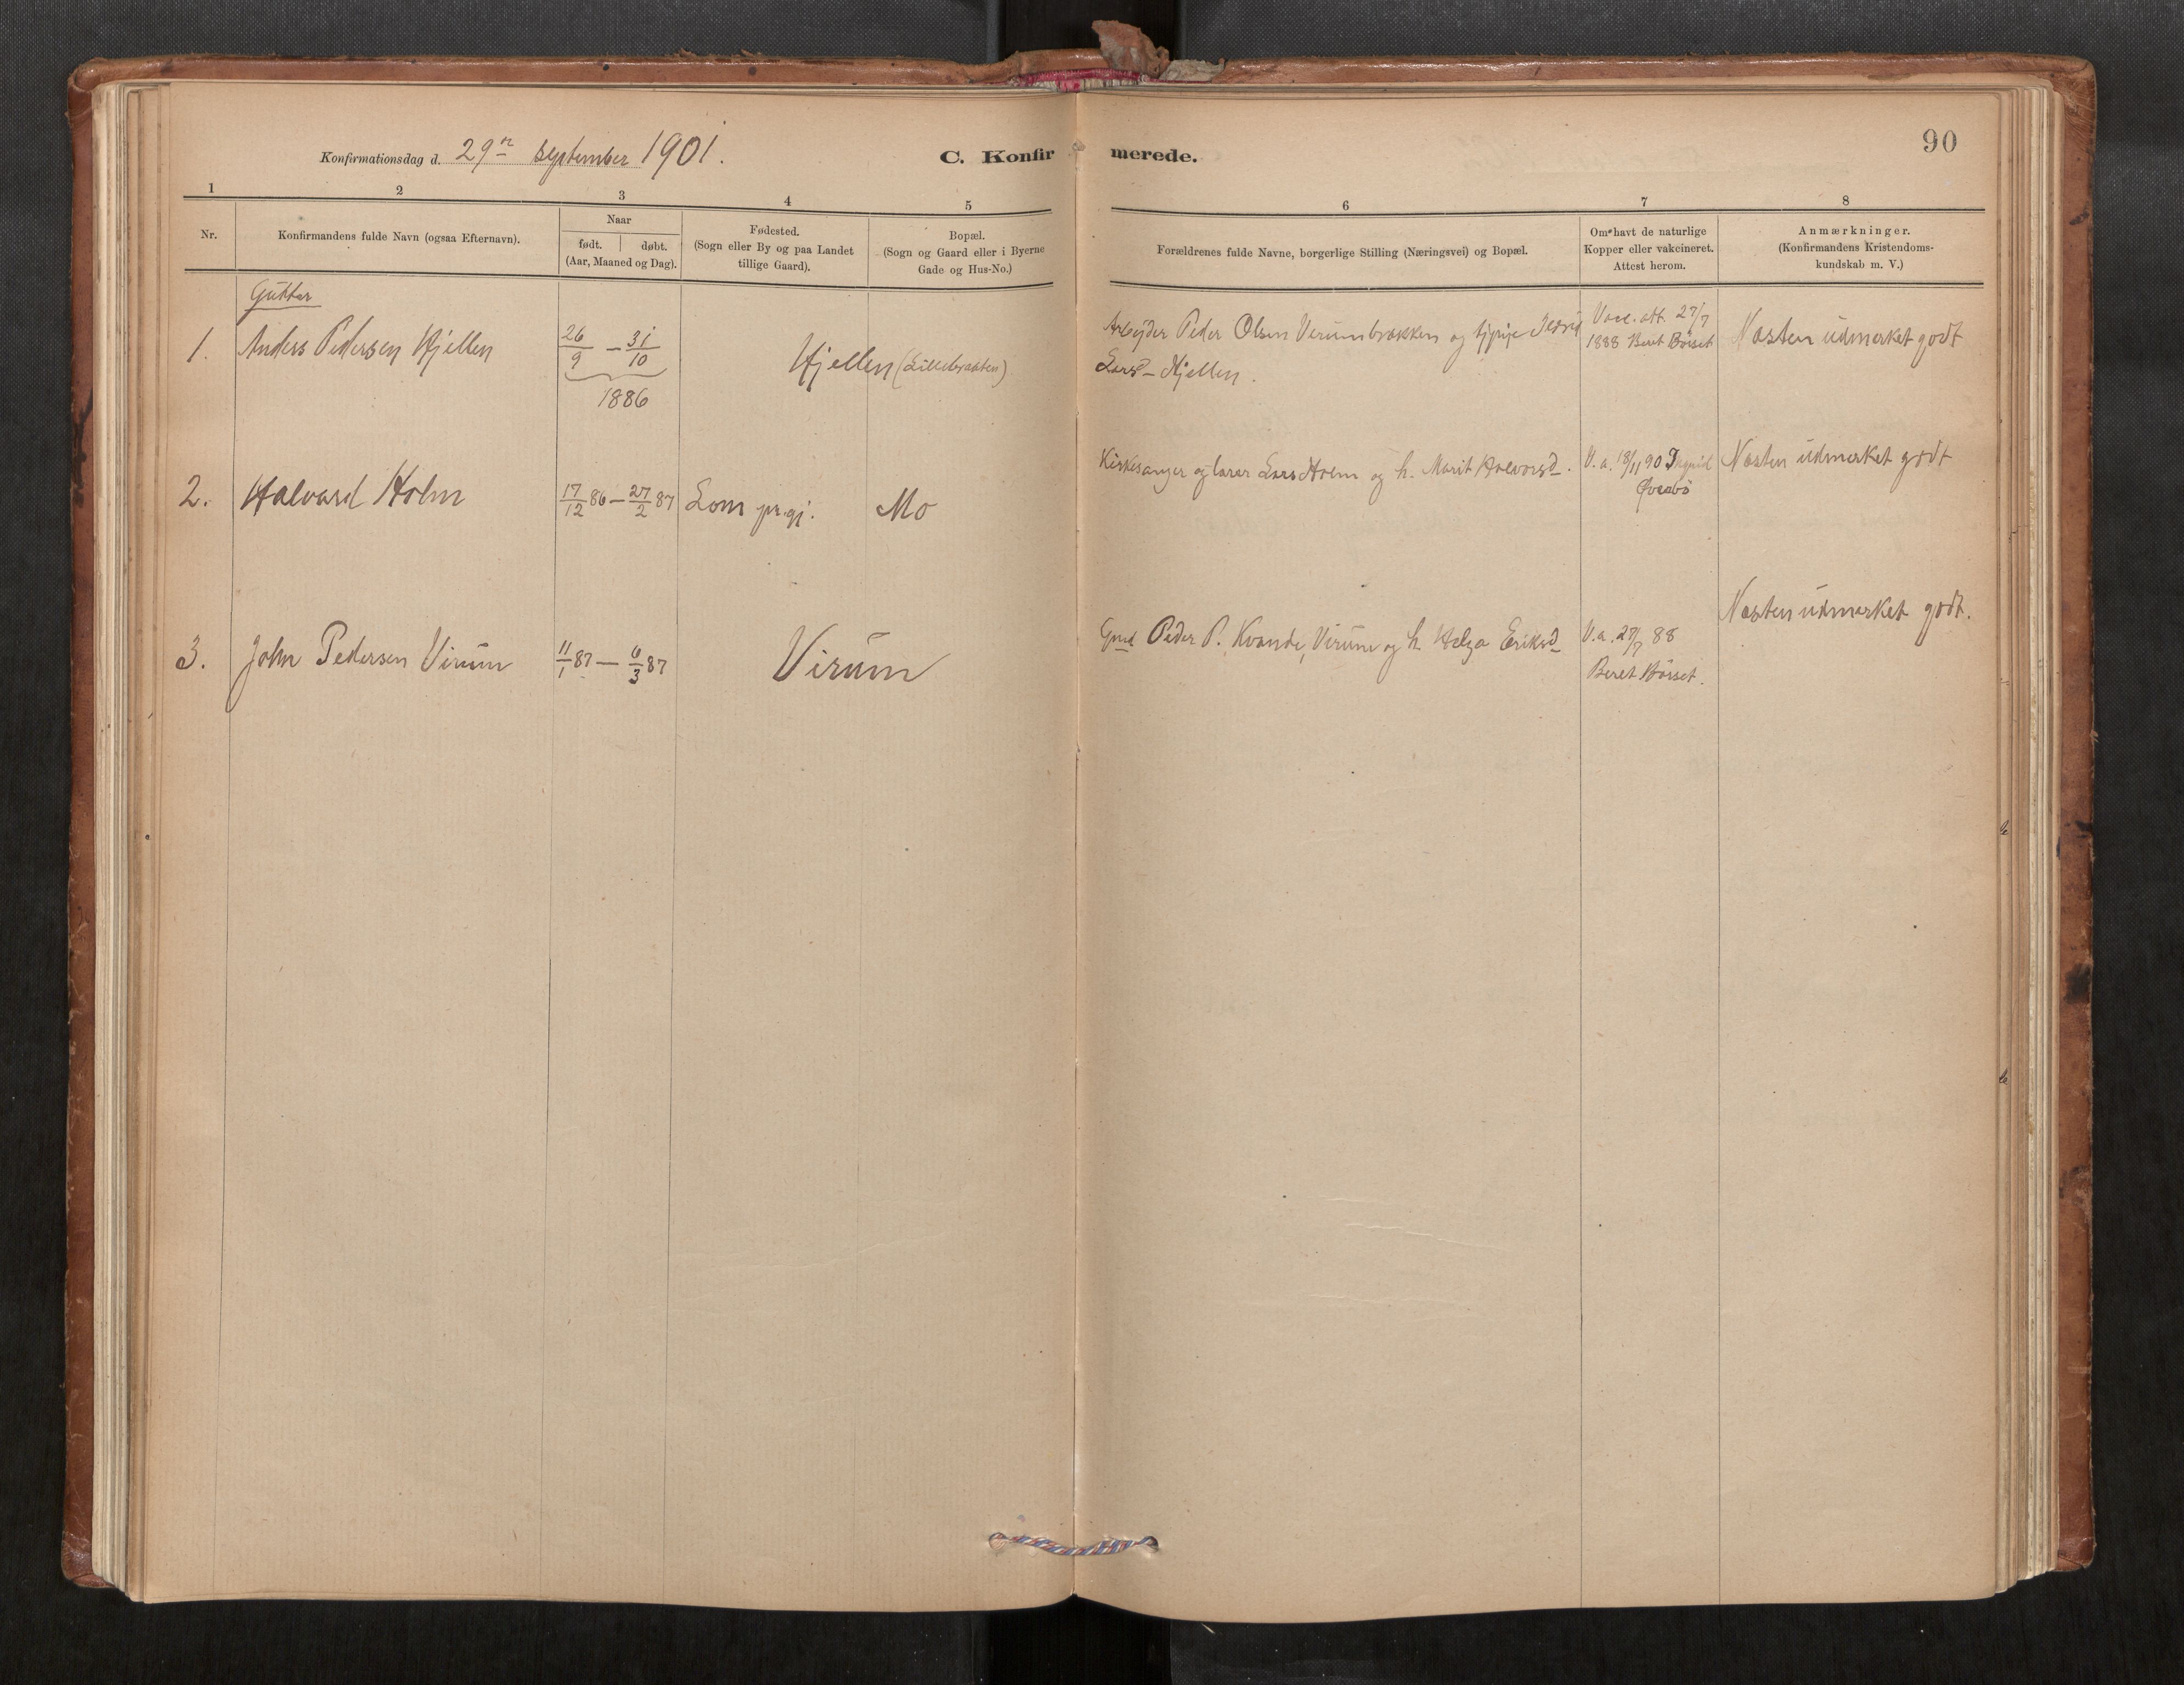 90
Konfirmationsdag d. 29de september 1901.
C. Konfirmerede.
1 2 3 4 5 6 7 8
Nr.
Konfirmandens fulde Navn (ogsaa Efternavn).
Naar
født. | døbt.
(Aar, Maaned og Dag).
Fødested.
(Sogn eller By og paa Landet
tillige Gaard).
Bopæl.
(Sogn og Gaard eller i Byerne
Gade og Hus-No.)
Forældrenes fulde Navne, borgerlige Stilling (Næringsvei) og Bopæl.
Om havt de naturlige
Kopper eller vakcineret.
Attest herom.
Anmærkninger.
(Konfirmandens Kristendoms-
kundskab m. V.)
Gutter
1. Anders Pedersen Hjellen 26/9 – 31/10
1886
Hjellen (Lillebrækken)
Arbejder Peder Olsen Virumbrækken og
Larsd – Hjellen.
Vacc. att. 27/7
1888 Beret Börset
Næsten udmærket godt
2. Halvard Holm 17/12 86 – 27/2 87 Lom pr.gj. Mo
Kirkesanger og lærer Lars Holm og h. Marit Halvorsd.
V. a. 18/11 90 Ingrid
Øverbö
Næsten udmærket godt
3. John Pedersen Virum 11/1 87 – 6/3 87 Virum
Gmd Peder P. Kvande, Virum og h. Helga Eriksd
V. a. 27/7 88
Beret Börset.
Næsten udmærket godt.